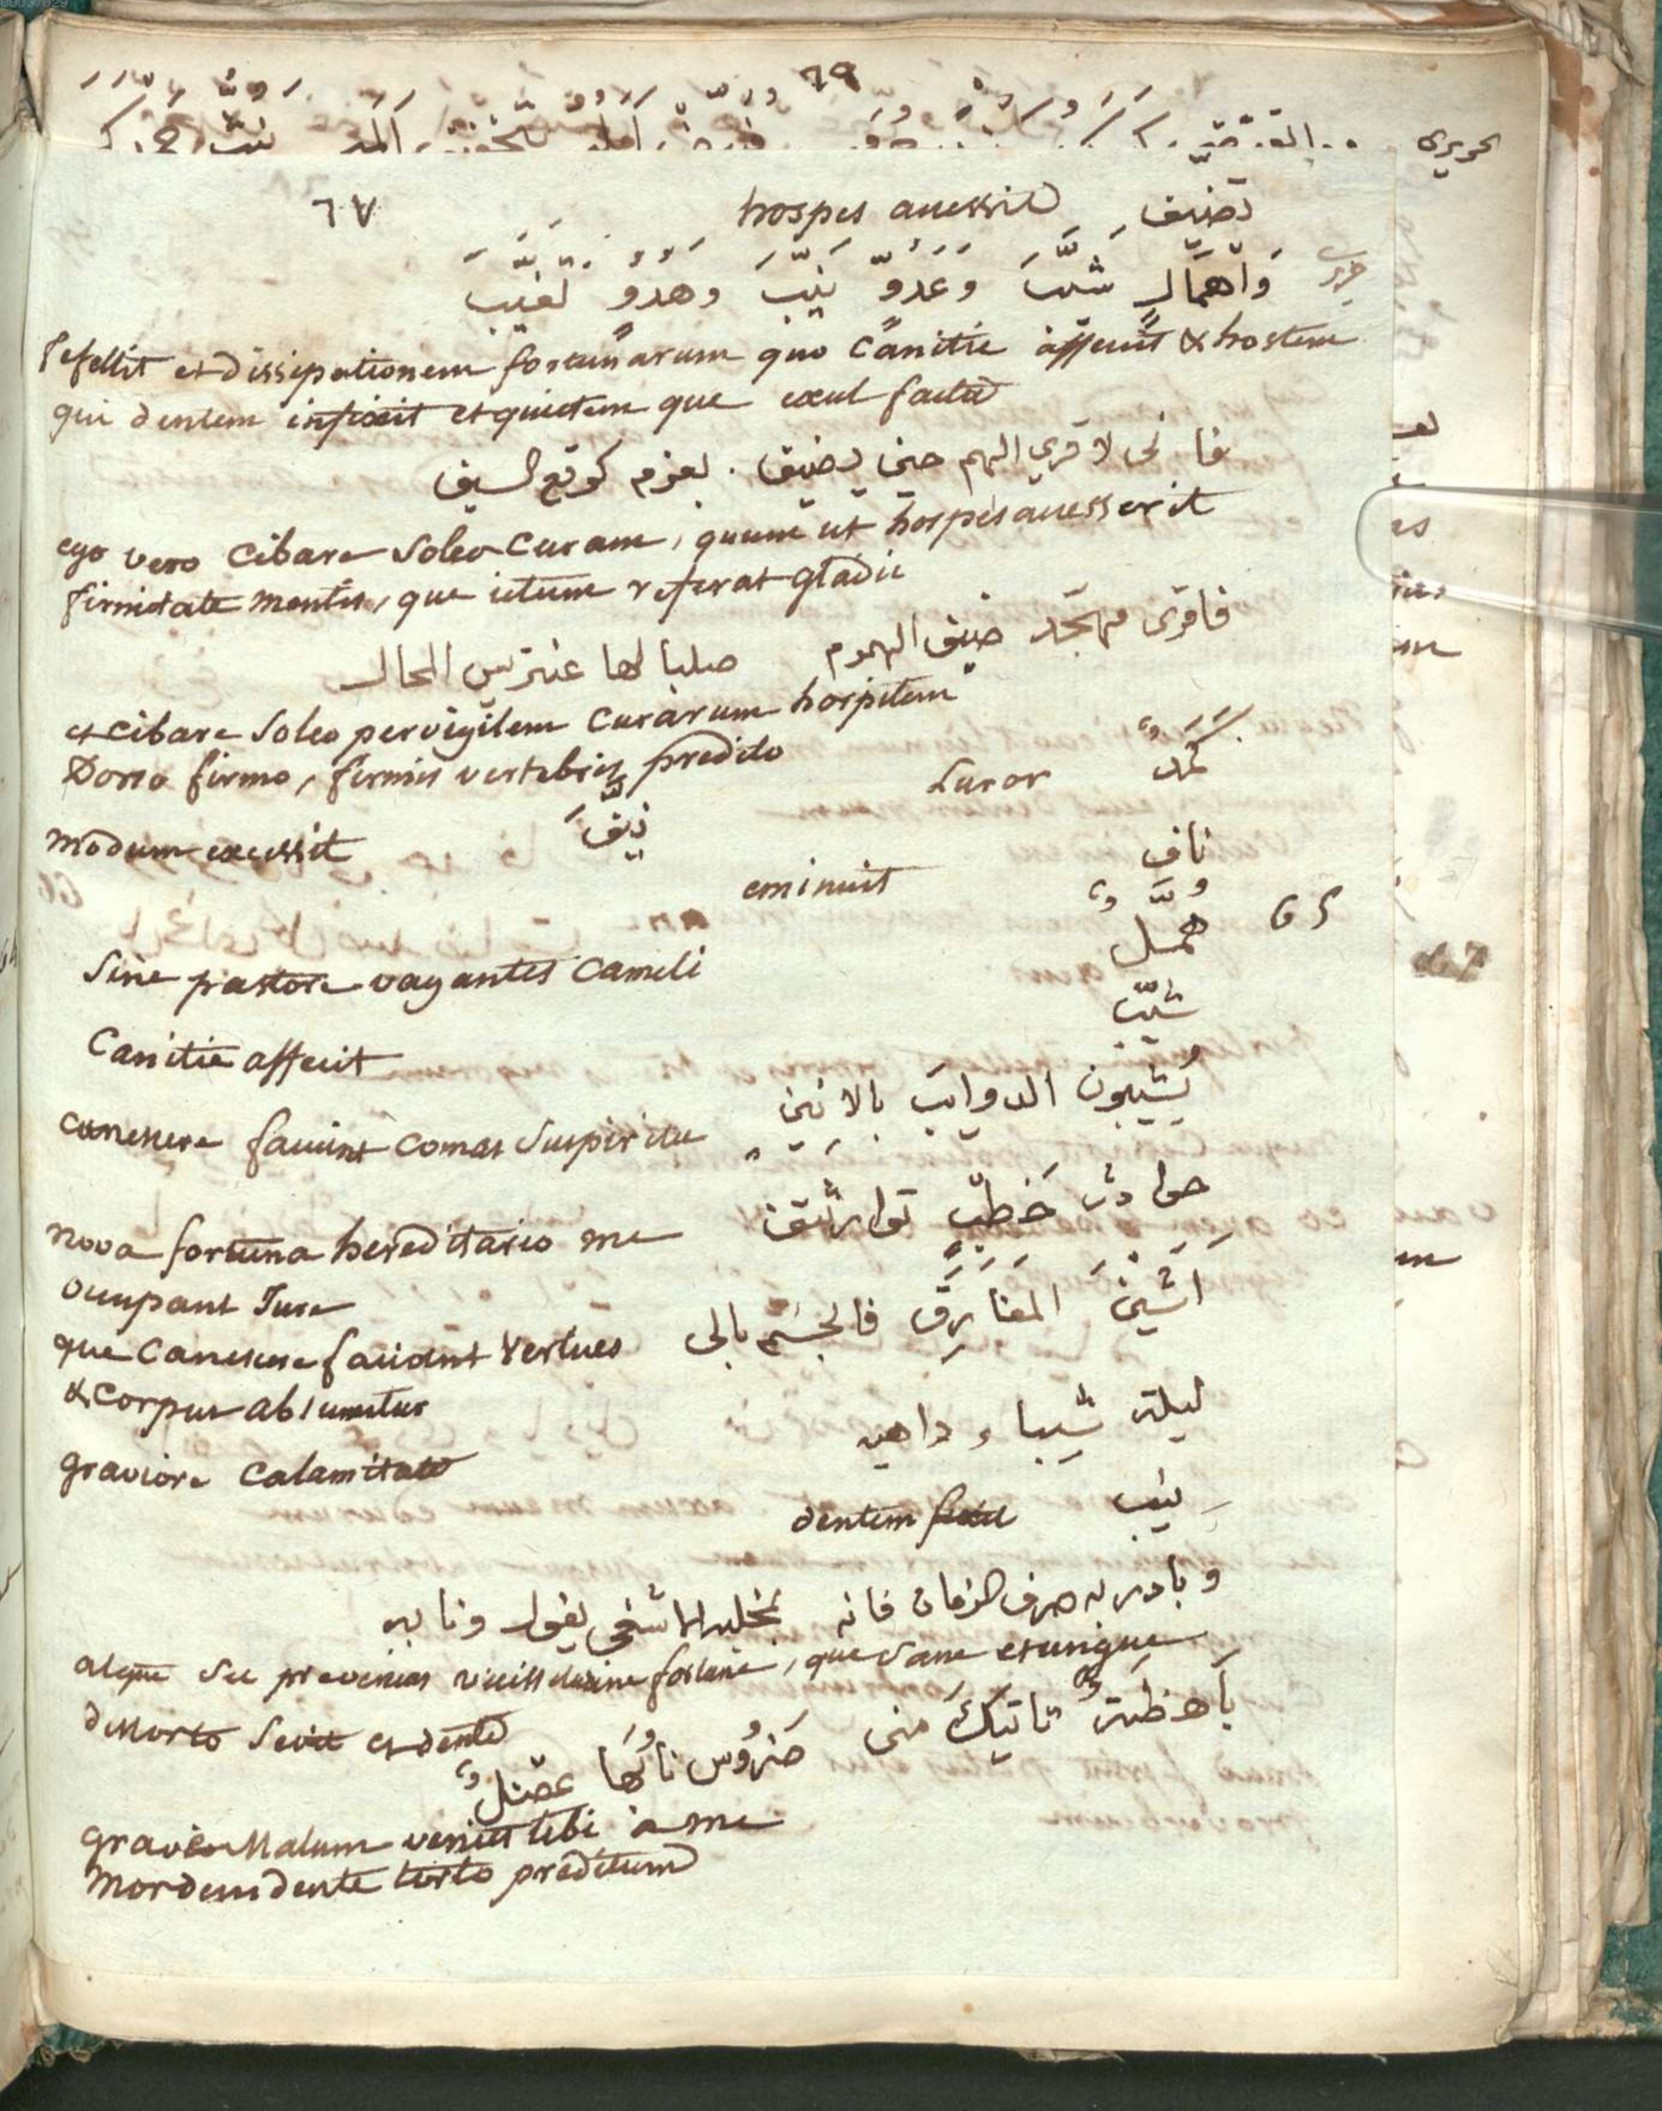 69
حريري
تضيف hospes accessit ٦٧
وَاهمال شَيَّبَ وَعَدُوّ نَيَّبَ وهدوّ تغيَّبَ
refellit et dissipationem fortunarum quo Canitie affecit & hostem
qui dentem infixit et quietem que exul facta
فانى لا قري الهم حين يضيق . بعزم كوقع السيف
ego vero Cibare soleo Curam, quum ut hospes accesserit
firmitate mentis, que ictum referat gladii
فاقرى مهجّد ضيف الهموم صلبا لها عنتريس المحال
et cibare soleo pervigilem Curarum hospitem
Dorso firmo, firmis vertebris predito
كَمَدٌ Luror
نيَّفَ modum excessit
ناف eminuit
65 همَّل
Sine pastore vagantes Cameli
شيّب
Canitie affecit
يُشيبون الدوايبَ بالانين
canescere faciunt comas Suspiritu
حوادث خَطبٍ توارثنى
nova fortuna hereditario me
occupant Jure
اَشَبْنَ المفَارِقَ فالجسَم بالى
que Canescere faciant vertices
& Corpus absumitur
ليلة شيباء داهيه
graviore Calamitate
نيّب
dentem fixit
وبادر به صرف الزمان فانه بمخلبه الاشغى يغول ونابه
atque sic prevenias vicissitudine fortune, que sane et ungue
distorto sevit et dente
بَاهظةٌ تاتيكَ منى ضَرُوس نابُهَا عصَلٌ
grave Malum veniet tibi a me
Mordens dente torto preditum